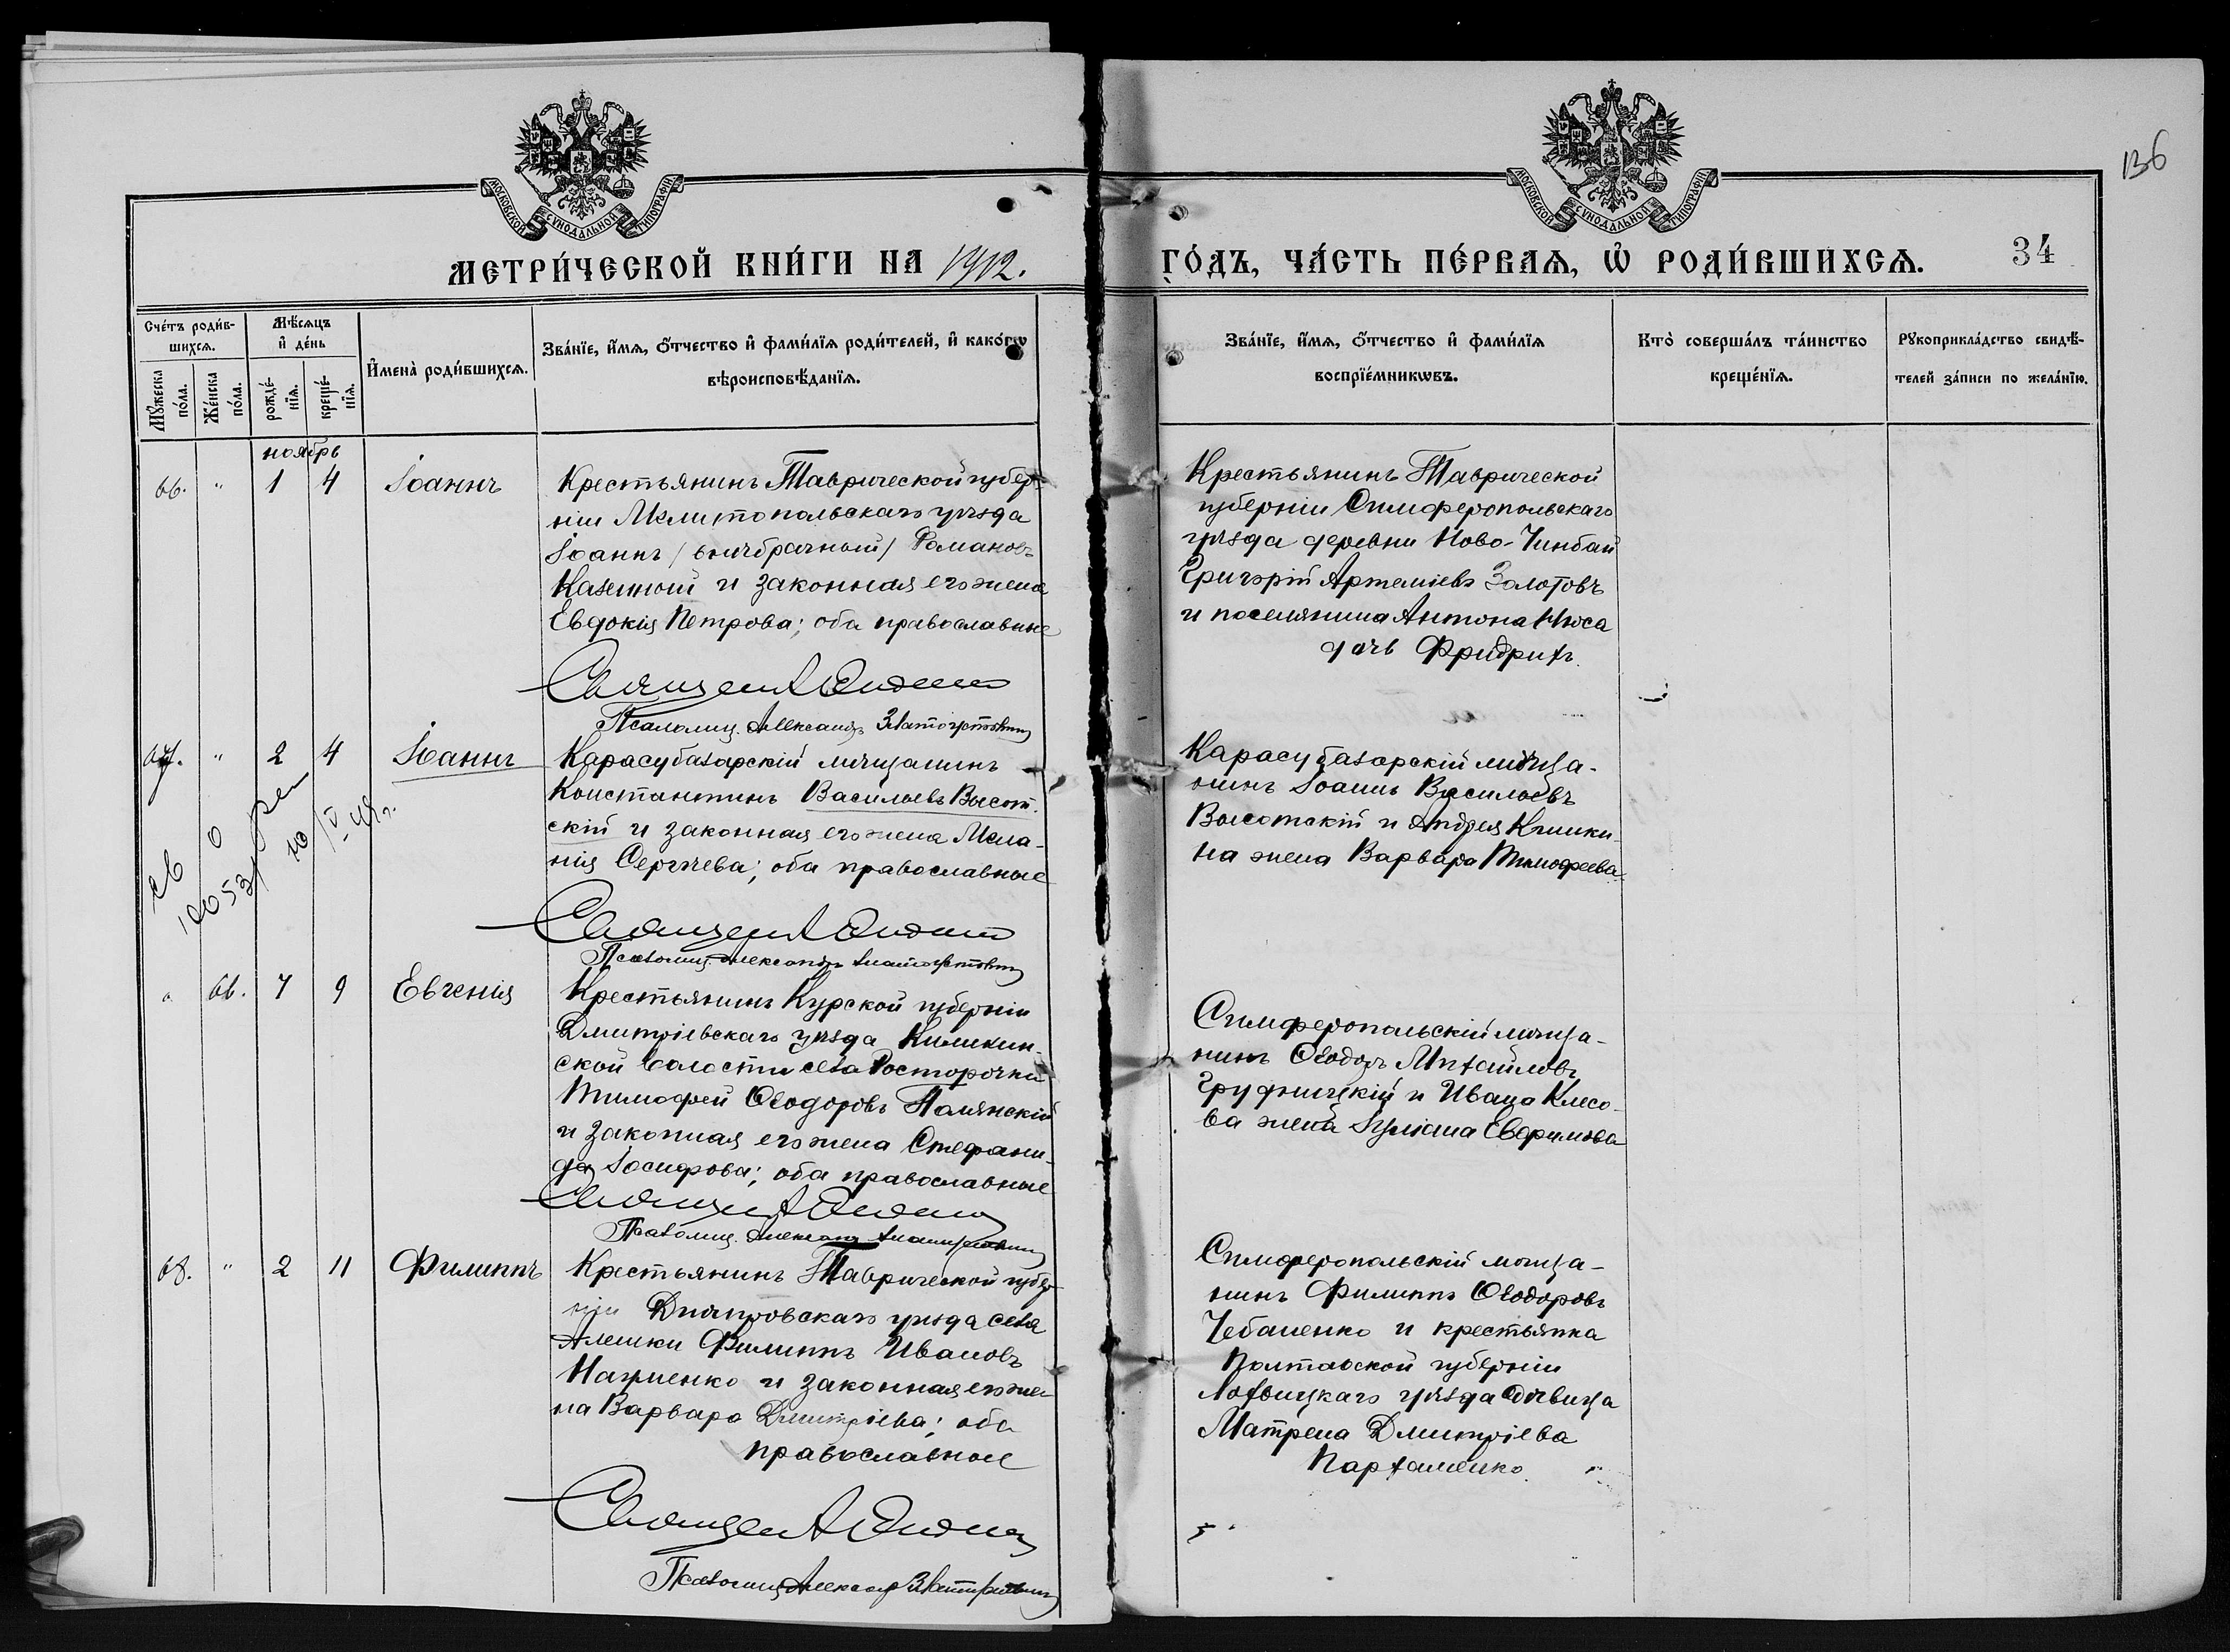 136
МОСКОВСКОЙ СѴНОДАЛЬНОЙ ТИПОГРАФІИ
МОСКОВСКОЙ СѴНОДАЛЬНОЙ ТИПОГРАФІИ
МЕТРИ́ЧЕСКОЙ КНИ́ГИ НА 1912.
ГО́ДЪ, ЧА́СТЬ ПЕ́РВАѦ, Ѡ҆ РОДИ́ВШИХСѦ.
34
Сче́тъ роди́в-
шихсѧ.
Мꙋ́жеска
по́ла.
Же́нска
по́ла.
Мѣ́сѧцъ
и҆ де́нь
рожде́-
нїѧ.
креще́-
нїѧ.
И҆мена̀ роди́вшихсѧ.
Зва́нїе, и҆́мѧ, ѻ҆́тчество и҆ фами́лїѧ роди́телей, и҆ како́гѡ
вѣроисповѣ́данїѧ.
Зва́нїе, и҆́мѧ, ѻ҆́тчество и҆ фами́лїѧ
воспрїе́мникѡвъ.
Кто̀ соверша́лъ та́инство
креще́нїѧ.
Рꙋкоприкла́дство свидѣ́-
телей за́писи по жела́нїю.
ноябрь
66. " 1 4 Іоаннъ
Крестьянинъ Таврической губер-
ніи Мелитопольскаго уѣзда
Іоаннъ /внѣбрачный/ Романовъ
Казенный и законная его жена
Евдокія Петрова; оба православные
Священ. А
Псаломщ. Александръ Златоустовъ
Крестьянинъ Таврической
губерніи Симферопольскаго
уѣзда деревни Ново-Чинбай
Григорій Артеміевъ Золотовъ
и поселянина Антона Нюса
дочь Фридрихъ
67. " 2 4 Іоаннъ
Карасубазарскій мѣщанинъ
Константинъ Васильевъ Высот-
скій и законная его жена Мела-
нія Сергѣева; оба православные
Священ. А
Псаломщ. Александръ Златоустовъ
Карасубазарскій мѣща-
нинъ Іоаннъ Васильевъ
Высотскій и Андрея Кишки-
на жена Варвара Тимофеева
" 66. 7 9 Евгенія
Крестьянинъ Курской губерніи
Дмитріевскаго уѣзда
ской волости села Расторочки
Тимофей Ѳеодоровъ Полянскій
и законная его жена Стефани-
да Іосифова; оба православные
Священ. А
Псаломщ. Александръ Златоустовъ
Симферопольскій мѣща-
нинъ Ѳеодоръ Михайловъ
и Ивана Клесо-
ва жена Іуліана Евфимова
68. " 2 11 Филиппъ
Крестьянинъ Таврической губер-
ніи Днѣпровскаго уѣзда села
Алешки Филиппъ Ивановъ
Науменко и законная его же-
на Варвара Дмитріева; оба
православные
Священ. А
Псаломщ. Александръ Златоустовъ
Симферопольскій мѣща-
нинъ Филиппъ Ѳеодоровъ
Чебаненко и крестьянка
Полтавской губерніи
Лохвицкаго уѣзда дѣвица
Матрена Дмитріева
Пархоменко